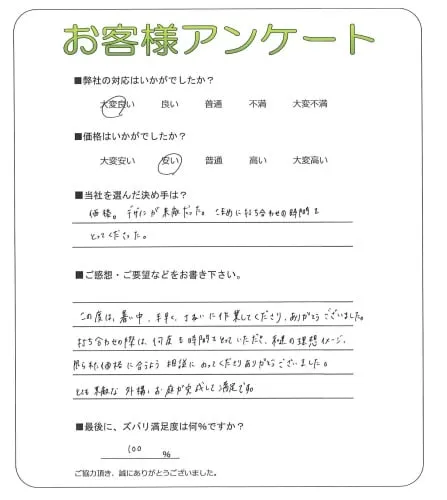 お客様アンケート
■弊社の対応はいかがでしたか?
大変良い 良い 普通 不満 大変不満
■価格はいかがでしたか?
大変安い 安い 普通 高い 大変高い
■当社を選んだ決め手は?
価格。デザインが素敵だった。こまめに打ち合わせの時間を
とってくださった。
■ご感想・ご要望などをお書き下さい。
この度は、暑い中、手早く、きれいに作業してくださり、ありがとうございました。
打ち合わせの際は、何度も時間をとっていただき、私達の理想イメージ、
限られた価格に合うよう相談にのってくださりありがとうございました。
とても素敵な外構、お庭が完成して満足です。
■最後に、ズバリ満足度は何%ですか?
100 %
ご協力頂き、誠にありがとうございました。